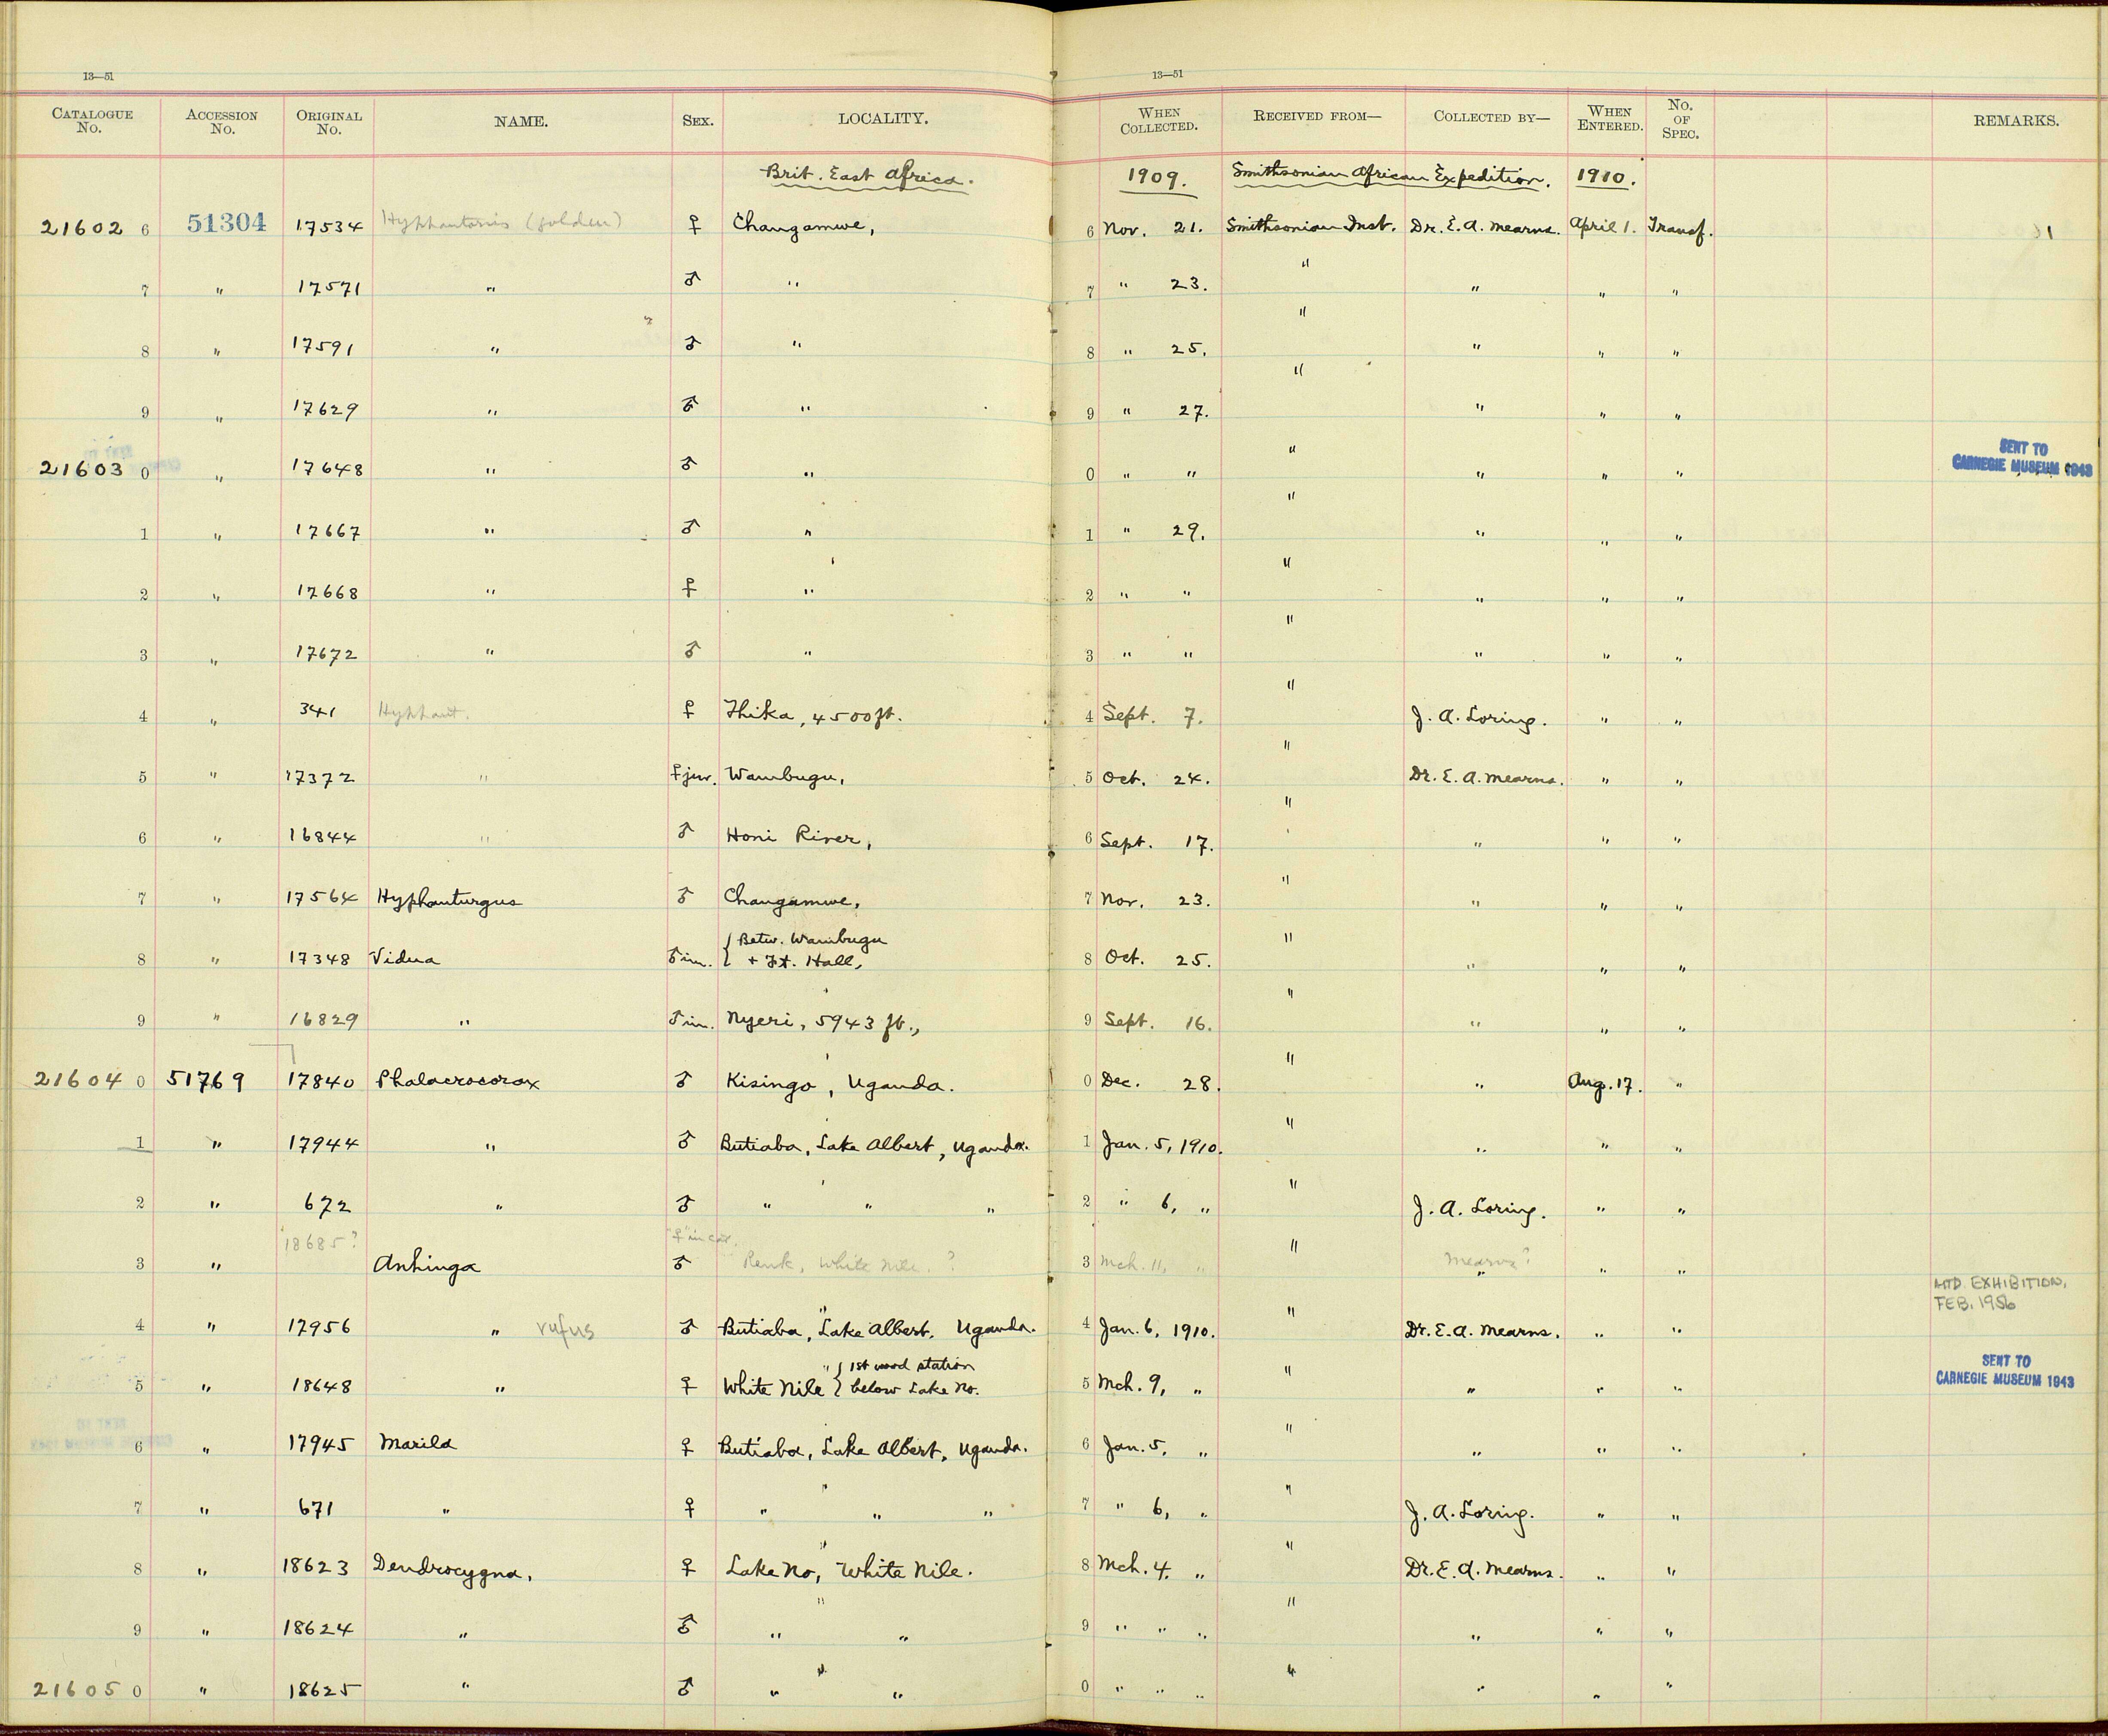 13—51 13—51
CATALOGUE No. ACCESSION No. ORIGINAL No. NAME. SEX. LOCALITY. WHEN COLLECTED. RECEIVED FROM— COLLECTED BY— WHEN ENTERED. No. OF SPEC. REMARKS.
Brit. East Africa. 1909. Smithsonian African Expedition. 1910.
21602 6 51304 17534 Hyphantornis (golden) ♀ Changamwe, 6 Nov. 21. Smithsonian Inst. Dr. E. A. Mearns. April 1. Transf. 1
7 " 17571 " ♂ " 7 " 23. " " " "
8 " 17591 " ♂ " 8 " 25. " " " "
9 " 17629 " ♂ " 9 " 27. " " " "
21603 0 " 17648 " ♂ " 0 " " " " " " SENT TO CARNEGIE MUSEUM 1943
1 " 17667 " ♂ " 1 " 29. " " " "
2 " 17668 " ♀ " 2 " " " " " "
3 " 17672 " ♂ " 3 " " " " " "
4 " 341 Hyphant. ♀ Thika, 4500 ft. 4 Sept. 7. " J. A. Loring. " "
5 " 17372 " ♀ juv. Wambugu, 5 Oct. 24. " Dr. E. A. Mearns. " "
6 " 16844 " ♂ Honi River, 6 Sept. 17. " " " "
7 " 17564 Hyphanturgus ♂ Changamwe, 7 Nov. 23. " " " "
8 " 17348 Vidua ♂ im. { Betw. Wambugu + Ft. Hall, 8 Oct. 25. " " " "
9 " 16829 " ♂ im. Nyeri, 5943 ft., 9 Sept. 16. " " " "
21604 0 51769 17840 Phalacrocorax ♂ Kisingo, Uganda. 0 Dec. 28. " " Aug. 17. "
1 " 17944 " ♂ Butiaba, Lake Albert, Uganda. 1 Jan. 5, 1910. " " " "
2 " 672 " ♂ " " " 2 " 6, " " J. A. Loring. " "
3 " 18685? Anhinga "♀" in cat. ♂ Renk, White Nile. ? 3 Mch. 11, " " Mearns? " " "
4 " 17956 " rufus ♂ Butiaba, Lake Albert, Uganda. 4 Jan. 6, 1910. " Dr. E. A. Mearns. " " MTD EXHIBITION, FEB. 1956
5 " 18648 " ♀ White Nile { 1st wood station below Lake No. 5 Mch. 9, " " " " " SENT TO CARNEGIE MUSEUM 1943
6 " 17945 Marila ♀ Butiaba, Lake Albert, Uganda. 6 Jan. 5, " " " " "
7 " 671 " ♀ " " " 7 " 6, " " J. A. Loring. " "
8 " 18623 Dendrocygna, ♀ Lake No, White Nile. 8 Mch. 4. " " Dr. E. A. Mearns. " "
9 " 18624 " ♂ " " 9 " " " " " " "
21605 0 " 18625 " ♂ " " 0 " " " " " " "